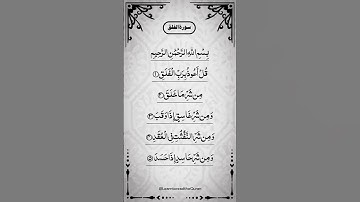 سورة الفلق
بِسْمِ اللهِ الرَّحْمٰنِ الرَّحِيمِ
قُلْ أَعُوذُ بِرَبِّ الْفَلَقِ ①
مِن شَرِّ مَا خَلَقَ ②
وَمِن شَرِّ غَاسِقٍ إِذَا وَقَبَ ③
وَمِن شَرِّ النَّفَّٰثَٰتِ فِي الْعُقَدِ ④
وَمِن شَرِّ حَاسِدٍ إِذَا حَسَدَ ⑤